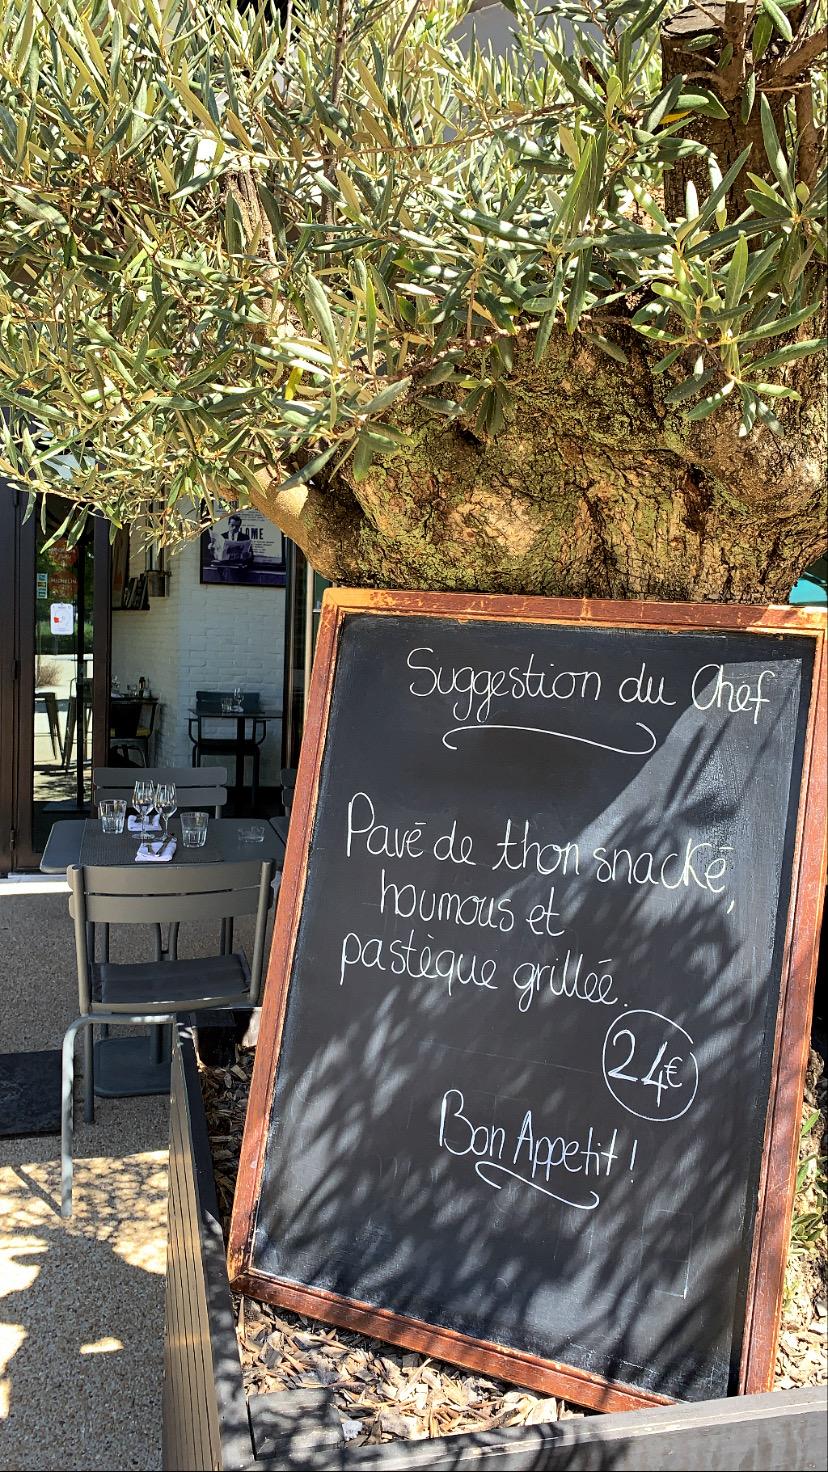 AME
MICHELIN
Suggestion du Chef
Pavé de thon snacké,
houmous et
pastèque grillée.
24€
Bon Appetit !